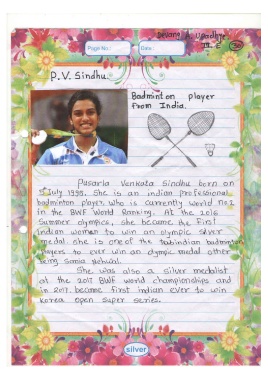 Devang A. Upadhye
Page No.:
Date:
P.V. Sindhu.
Badminton player
from India.
Pusarla Venkata Sindhu born on
5 July 1995. She is an indian professional
badminton player who is currently world no.2
in the BWF World Ranking. At the 2016
Summer olympics, she became the first
indian women to win an olympic silver
medal she is one of the badminton
players to ever win an olympic medal other
being Sania Nehwal.
She was also a silver medalist
at the 2017 BWF world championships and
in 2017, became first indian ever to win
Korea Open Super Series.
silver